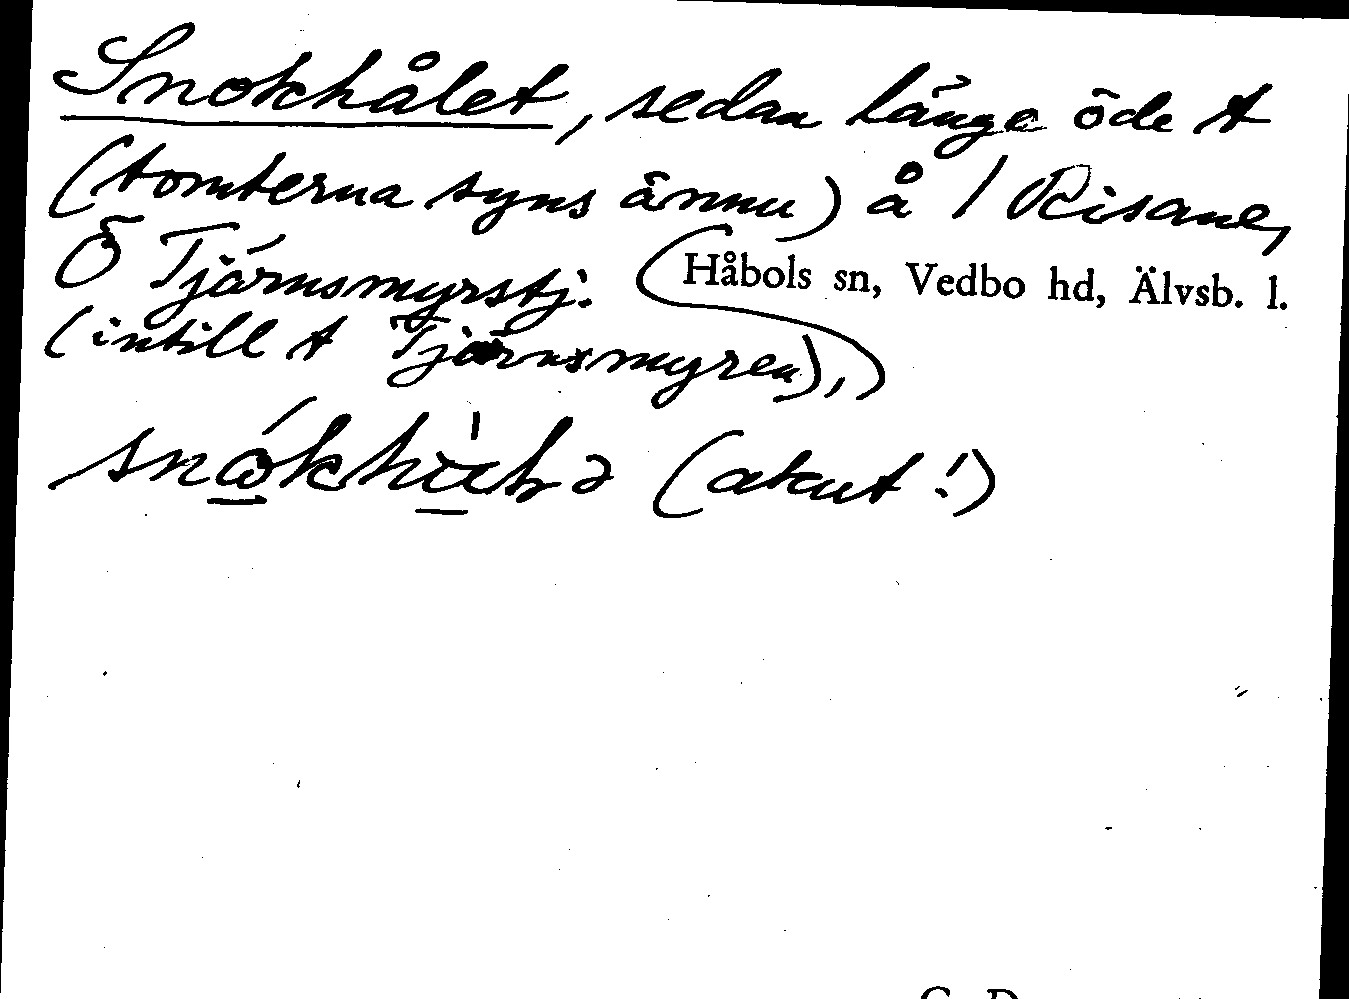 Snokhålet, sedan länge öde t
(tomterna syns ännu) å / Risane,
Ö Tjärnsmyrstj.
Håbols sn, Vedbo hd, Älvsb. l.
(intill t Tjärnsmyren),
(akut!)